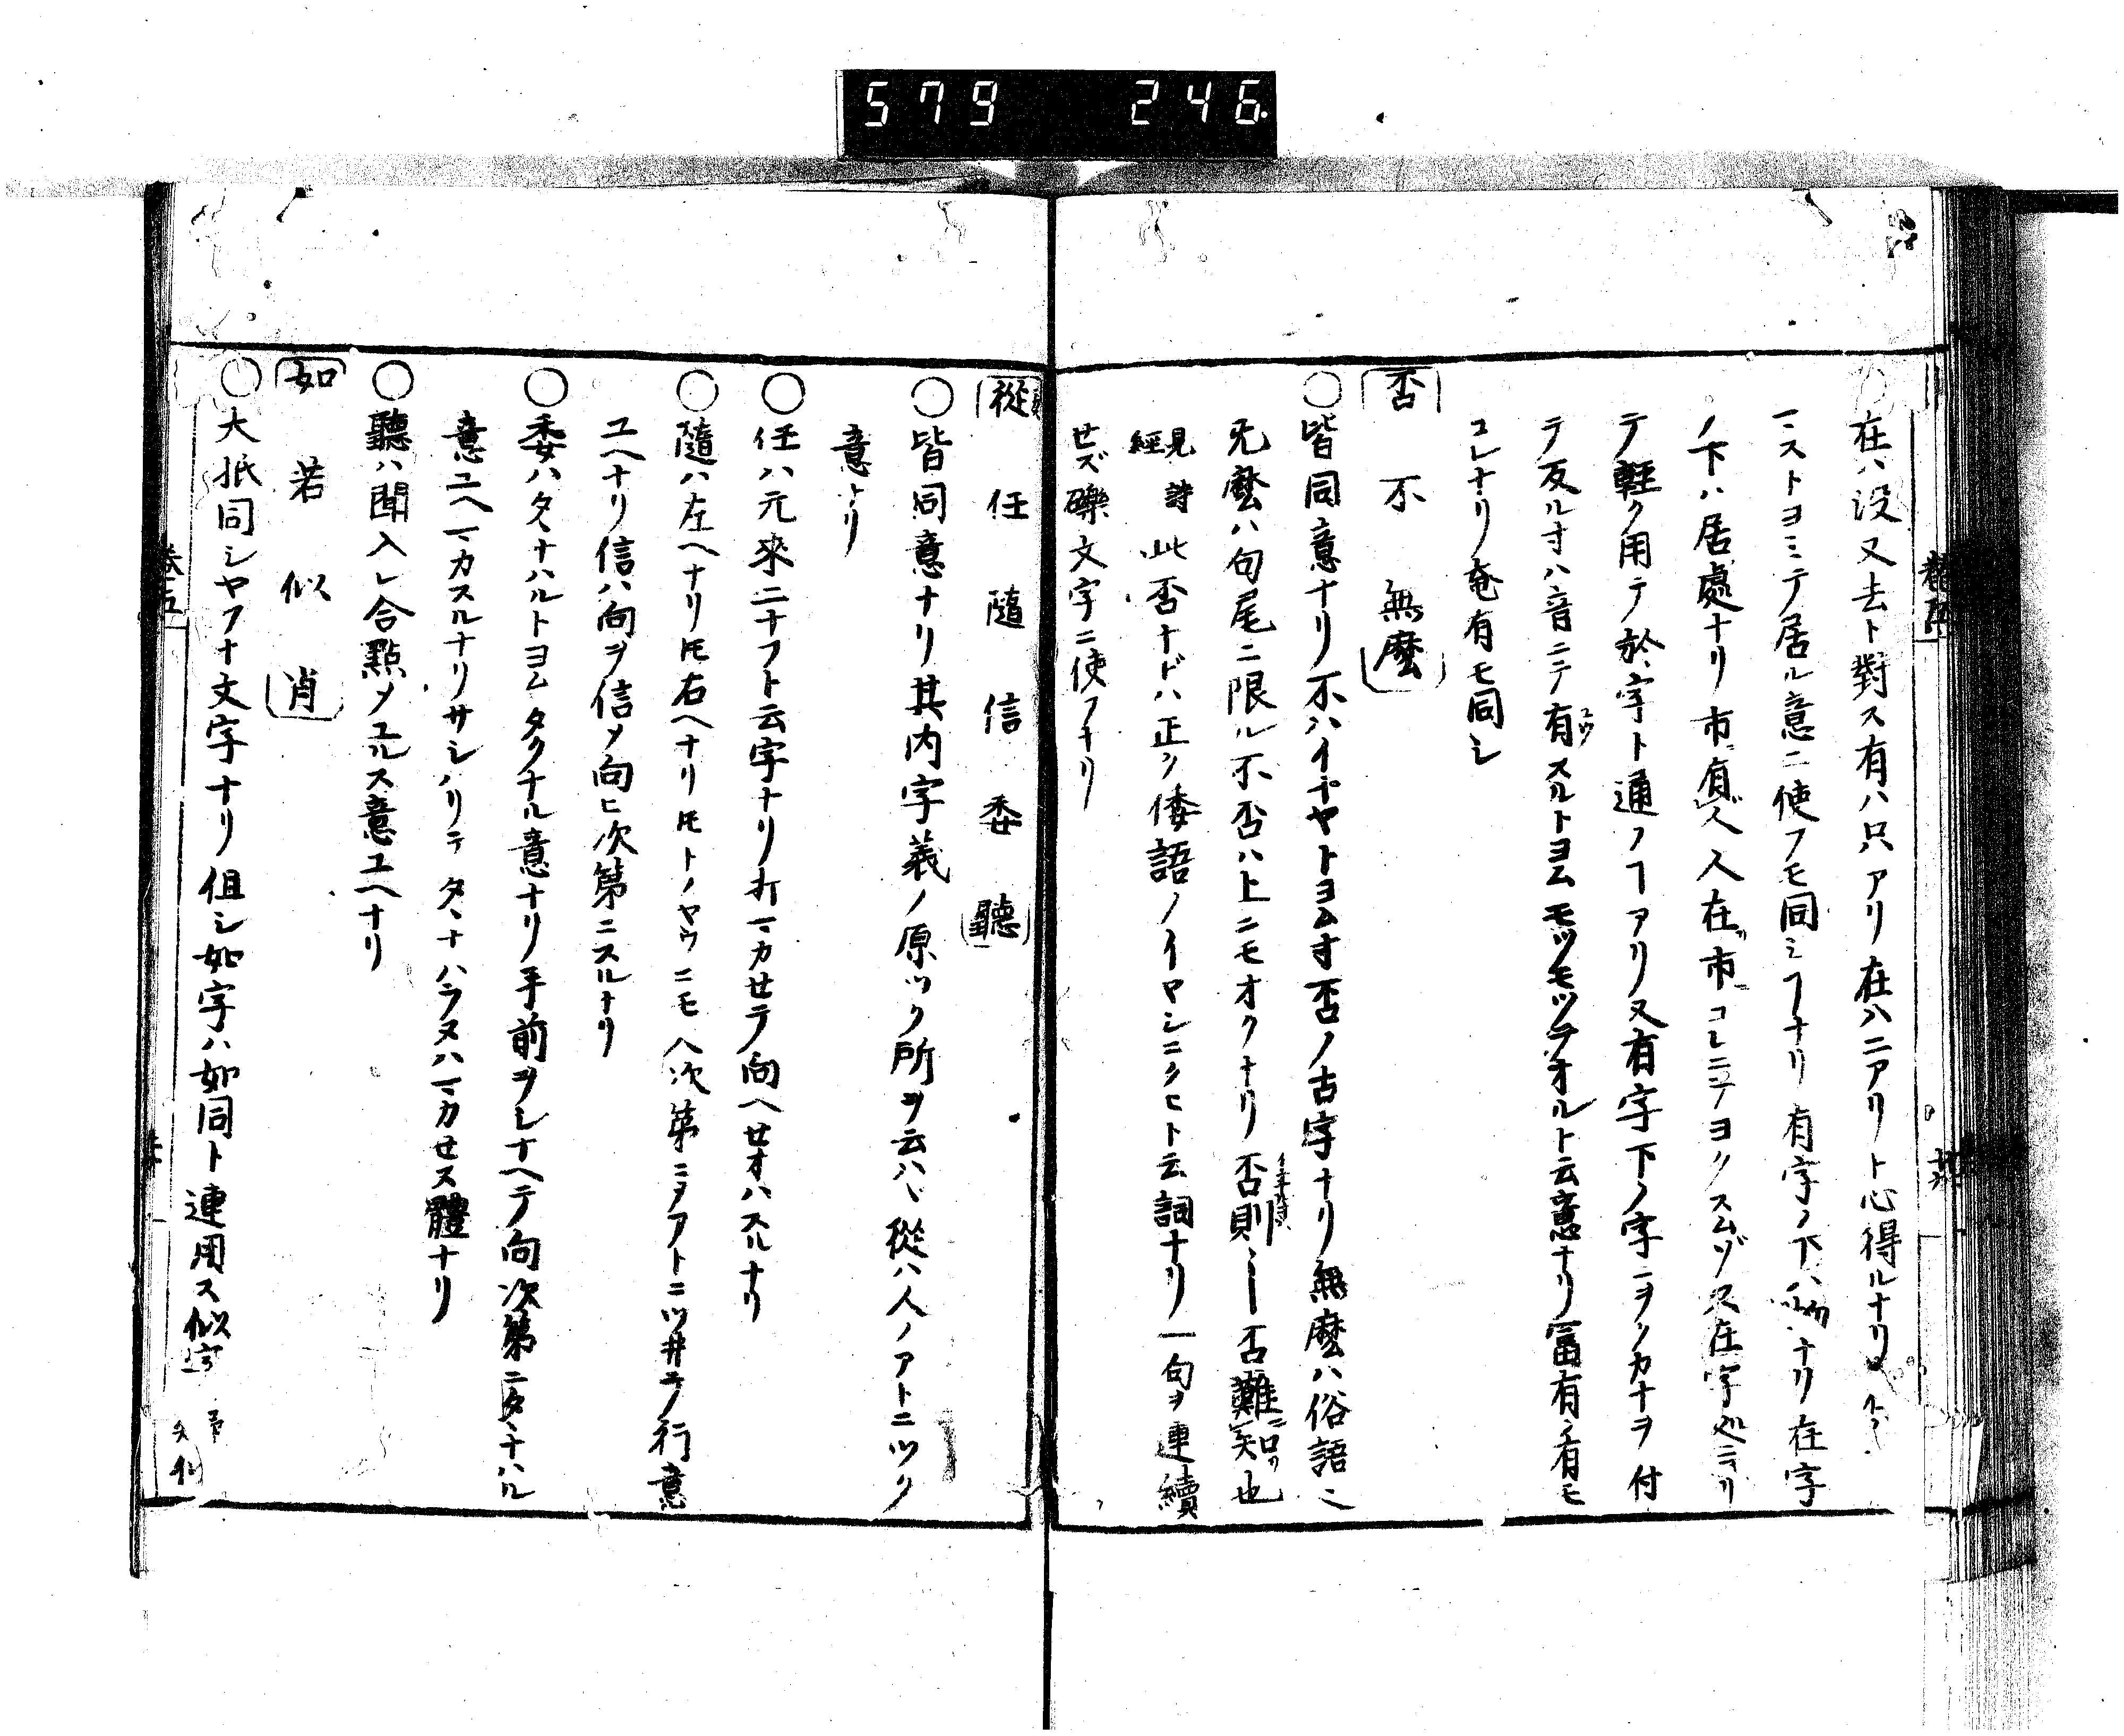 579 246
在ハ没又去ト對ス有ハ只アリ在ハニアリト心得ルナリ
マストヨミテ居ル意ニ使フモ同シヿナリ有字ノ下ハ物ナリ在字
ノ下ハ居處ナリ市有人人在市コレニテヨクスムゾ又在字
テ輕ク用テ於字ト通フヿアリ又有字下ノ字ニヲノカナヲ付
テ反ルオハ音ニテ有スルトヨムモツモツテオルト云意ナリ冨有ノ有モ
コレナリ奄有モ同シ
否 不 無 麼
○皆同意ナリ不ハイナヤトヨムオ否ノ古字ナリ無麼ハ俗語ニ
无麼ハ句尾ニ限ル不否ハ上ニモオクナリ否則 否難知也
見詩經 此否ナドハ正シク倭語ノイヤシニクヒト云詞ナリ一句ヲ連續
セズ礫文字ニ使フナリ
從 任 隨 信 委 聽
○皆同意ナリ其内字義ノ原ツク所ヲ云ハヽ從ハ人ノアトニツク
意ナリ
○任ハ元來ニナフト云字ナリ打マカセテ向ヘセオハスルナリ
○隨ハ左ヘナリ𪜈右ヘナリ𪜈トノヤウニモ人次第ニアトニツ井テ行意
ユヘナリ信ハ向ヲ信メ向ヒ次第ニスルナリ
○委ハタヽナハルトヨムタクナル意ナリ手前ヲシナヘテ向次第ニタヽナハル
意ユヘマカスルナリサシハリテタヽナハラヌハマカセヌ體ナリ
○聽ハ聞入レ合點メユルス意ユヘナリ
如 若 似 肖
○大抵同シヤフナ文字ナリ但シ如字ハ如同ト連用ス似字
卷五